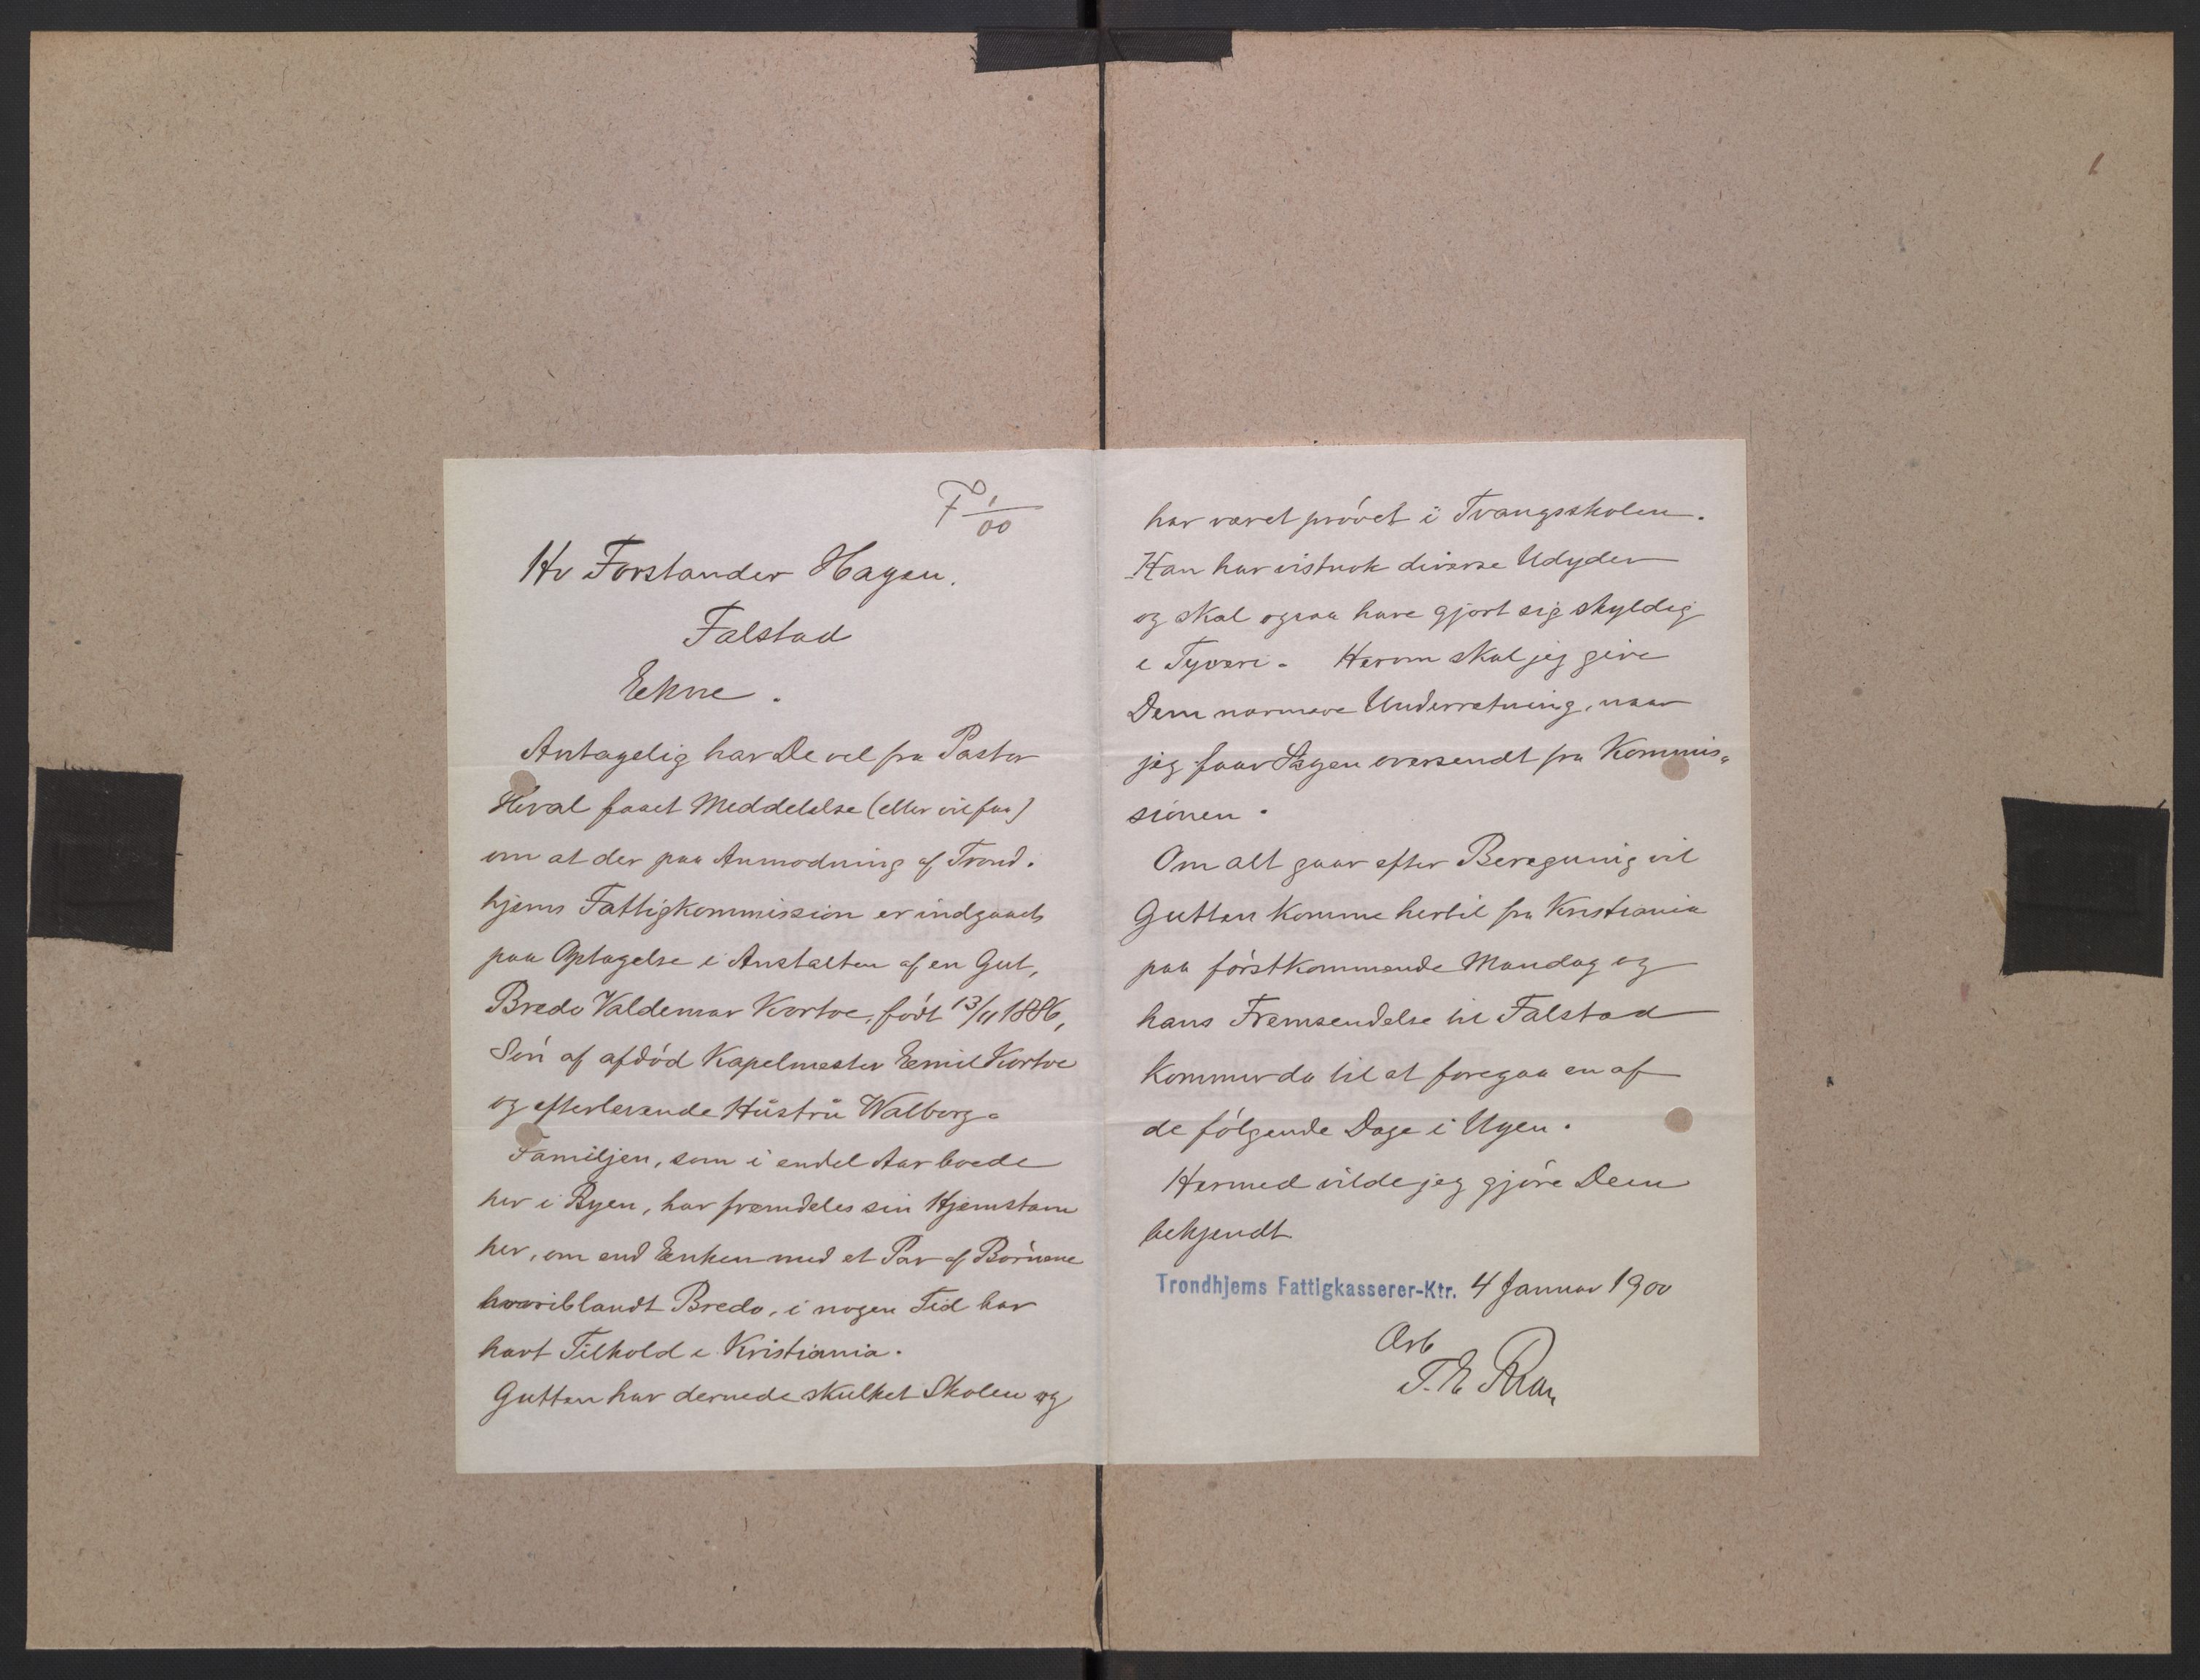 7 1/00
Hr Forstander Hagen.
Falstad
Ekne.
Antagelig har De vel fra Pastor
Hval faaet Meddelelse (eller vil faa)
om at der paa Anmodning af Trond-
hjems Fattigkommission er indgaaet
paa Optagelse i Anstalten af en Gut,
Bredo Valdemar Kortoe, født 13/11 1886,
Søn af afdød Kapelmester Emil Kortoe
og efterlevende Hustru Walborg.
Familjen, som i endel Aar boede
her i Byen, har fremdeles sin Hjemstavn
her, om end Enken med et Par af Børnene
hvoriblandt Bredo, i nogen Tid har
havt Tilhold i Kristiania.
Gutten har dernede skulket Skolen og
har været prøvet i Tvangsskolen.
Han har vistnok diverse Udyder
og skal ogsaa have gjort sig skyldig
i Tyveri. Herom skal jeg give
Dem nærmere Underretning, naar
jeg faar Sagen oversendt fra Kommis-
sionen.
Om alt gaar efter Beregning vil
Gutten komme hertil fra Kristiania
paa førstkommende Mandag og
hans Fremsendelse til Falstad
kommer da til at foregaa en af
de følgende Dage i Ugen.
Hermed vilde jeg gjøre Dem
bekjendt
Trondhjems Fattigkasserer-Ktr. 4 Januar 1900
Ærb